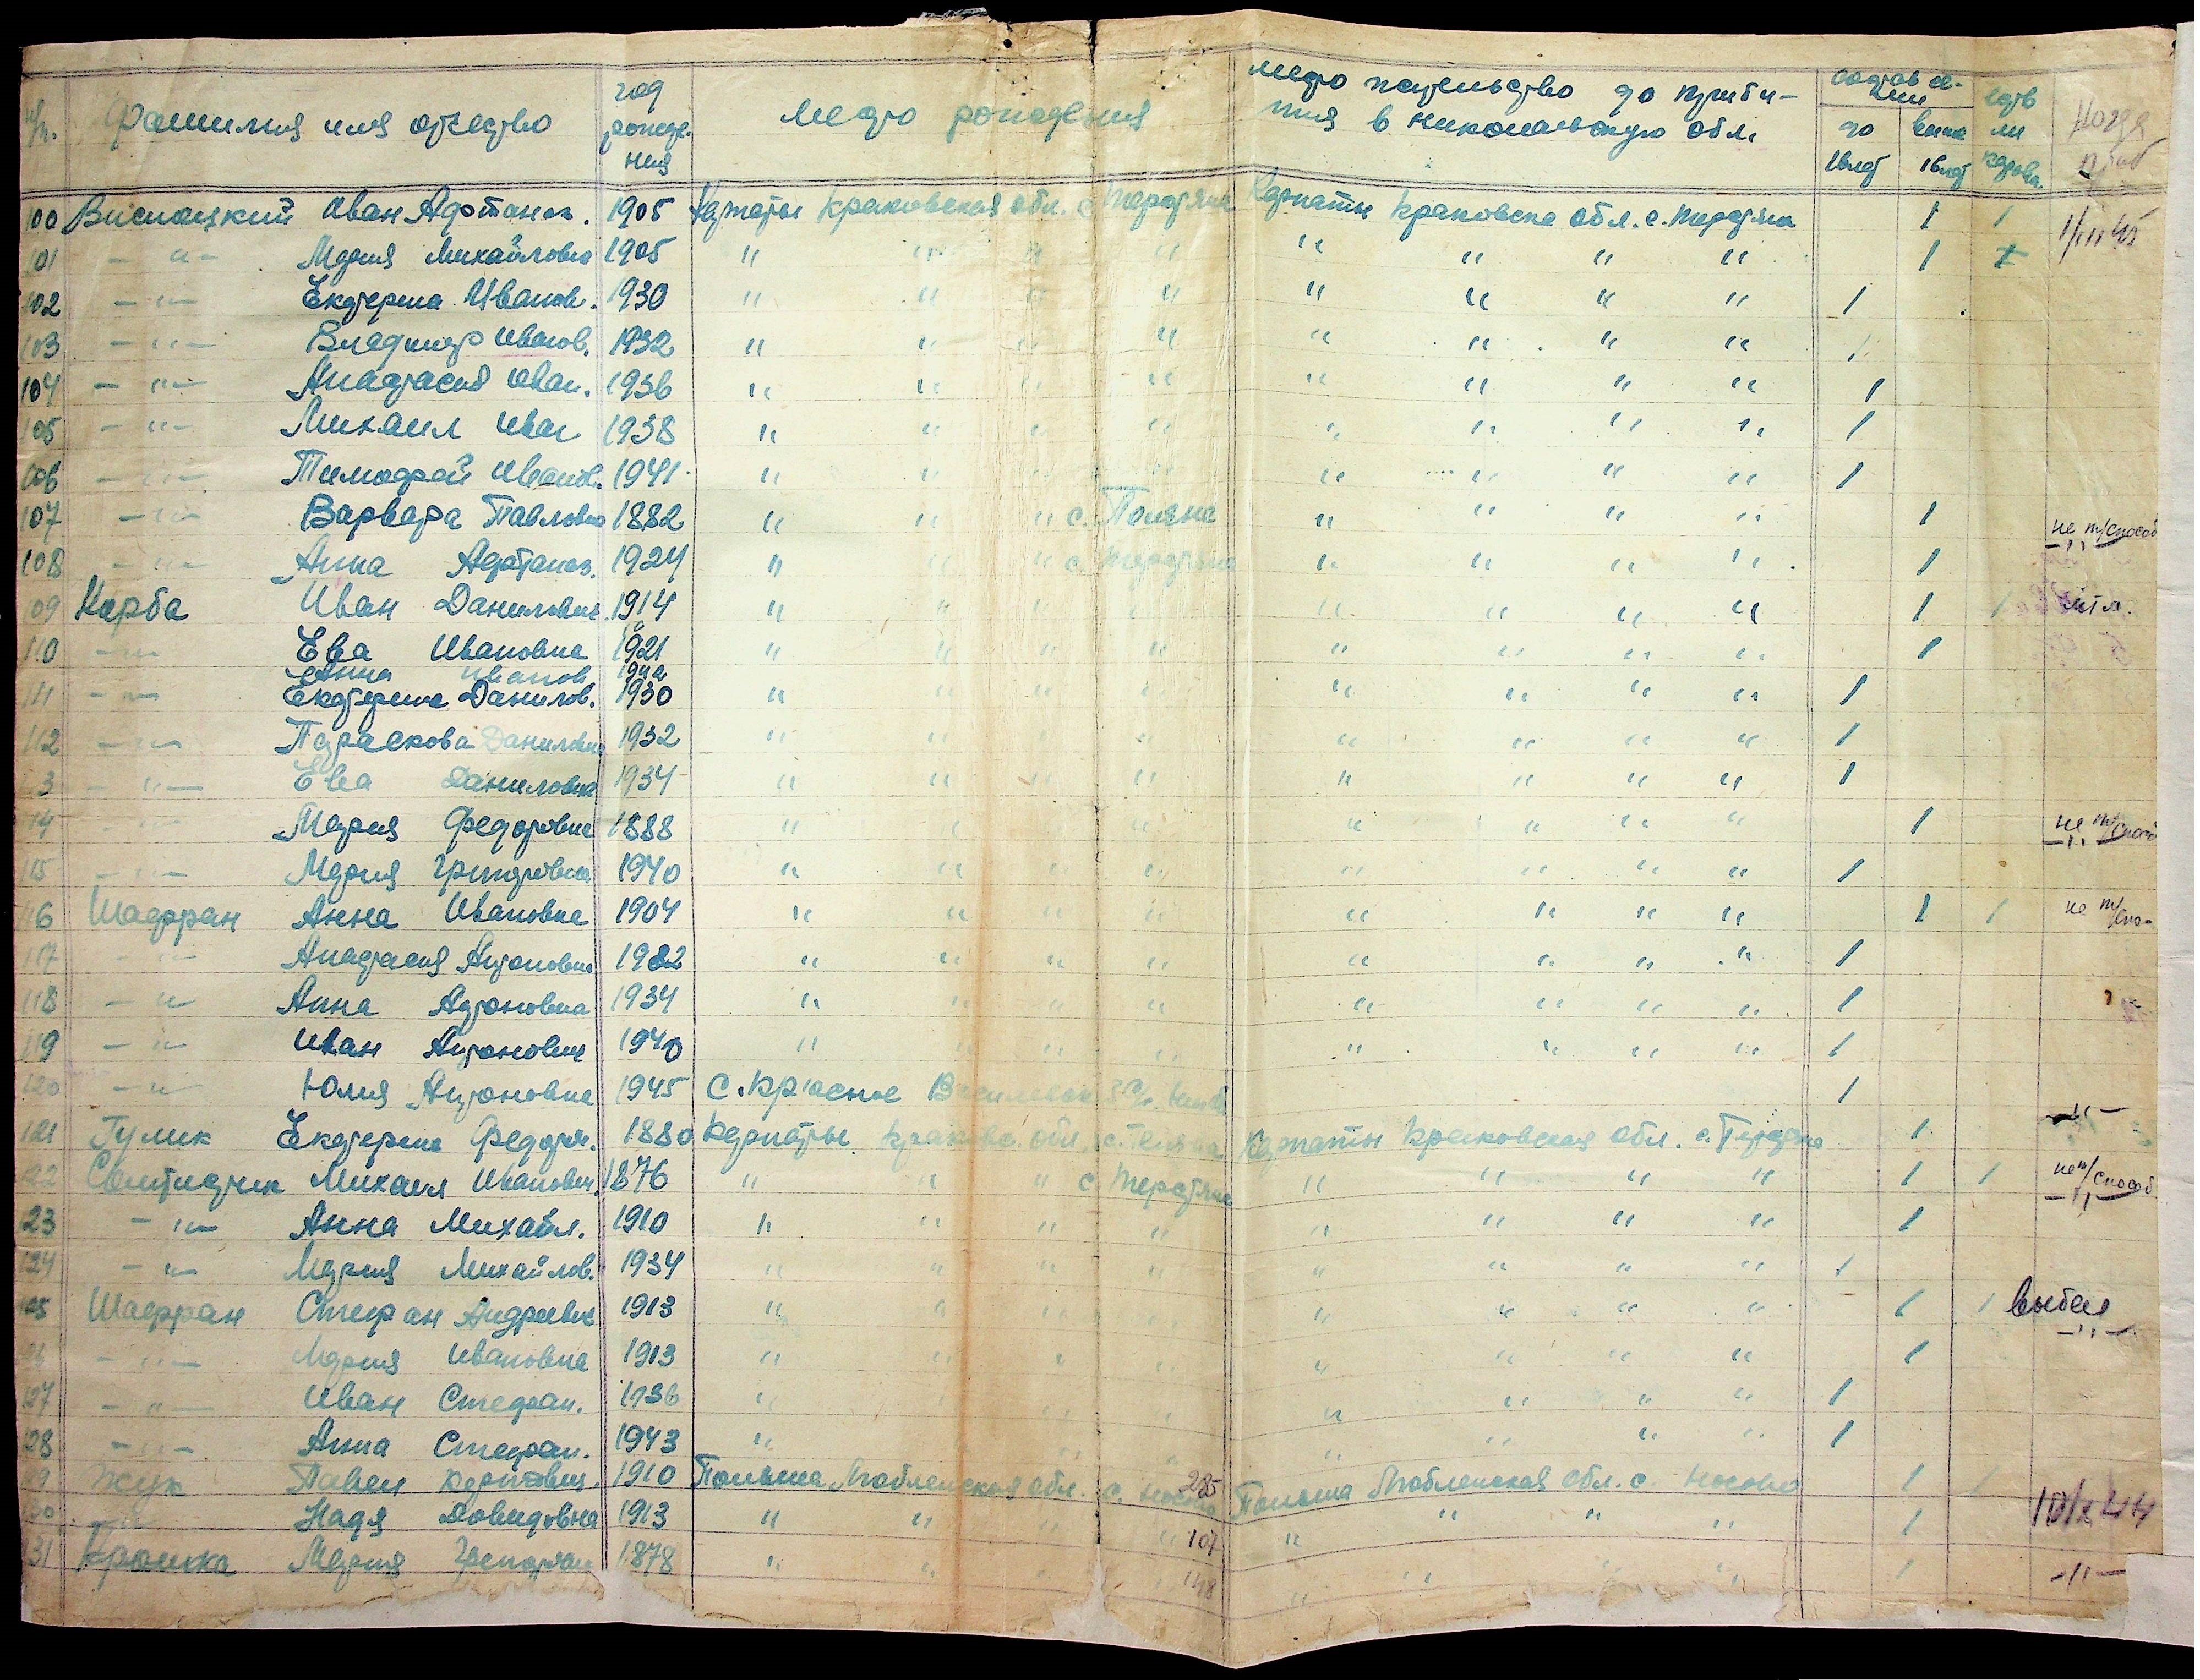 № п. Фамилия имя отчество год рожде-ния место рождения место жительство до прибы-тия в николаевскую обл. состав се-мьи до 16 лет выше 16 лет есть ли корова. Когда приб
100 Висноцкий Иван Афтанас. 1905 Карпаты Краковская обл. с. Терстяна Карпаты Краковска обл. с. Терстяна 1 1 1/III 45
101 -"- Мария Михайловна 1905 " " " " " " " " 1
102 -"- Екатерина Иванов. 1930 " " " " " " " " 1
103 -"- Владимир Иванов. 1932 " " " " " " " " 1
104 -"- Анастасия Иван. 1936 " " " " " " " " 1
105 -"- Михаил Иван 1938 " " " " " " " " 1
106 -"- Тимофей Иванов. 1941 " " " " " " " " 1
107 -"- Варвара Павловна 1882 " " " с. Поляна " " " " 1 не т/способ
108 -"- Анна Афтанас. 1924 " " " с. Терстяна " " " " 1 -"-
109 Карба Иван Данилович 1914 " " " " " " " " 1 1
110 -"- Ева Ивановна 1921 " " " " " " " " 1
Анна Иванов
111 -"- Екатерина Данилов. 1930 " " " " " " " " 1
112 -"- Параскова Даниловна 1932 " " " " " " " " 1
3 -"- Ева Даниловна 1934 " " " " " " " " 1
14 -"- Мария Федоровна 1888 " " " " " " " " 1 не т/способ
115 -"- Мария Григоровна 1940 " " " " " " " " 1 -"-
116 Шафран Анна Ивановна 1904 " " " " " " " " 1 1 не т/спо-
117 -"- Анастасия Антоновна 1932 " " " " " " " " 1
118 -"- Анна Антоновна 1934 " " " " " " " " 1
119 -"- Иван Антонович 1940 " " " " " " " " 1
120 -"- Юлия Антоновна 1945 С. Красное 1
121 Гулик Екатерина Федоров. 1880 Карпаты Краковс. обл. с. Поляна Карпаты Краковская обл. с. Терстяна 1 -"-
122 Михаил Иванович 1876 " " " с Терстяна " " " " 1 1 не т/способ
123 -"- Анна Михайл. 1910 " " " " " " " " 1 -"-
124 -"- Мария Михайлов. 1934 " " " " " " " " 1
125 Шафран Стефан Андреевич 1913 " " " " " " " " 1 1 выбыл
126 -"- Мария Ивановна 1913 " " " " " " " " 1 -"-
127 -"- Иван Стефан. 1936 " " " " " " " " 1
128 -"- Анна Стефан. 1943 " " " " " " " " 1
129 Жук Павел 1910 Польша Любленская обл. с. Носово Польша Любленская обл. с. Носово 1 1
130 -"- Надя Довидовна 1913 " " " " 107 " " " " 1 10/X 44
131 Мария Григорьян 1878 " " " " 148 " " " " 1 -"-